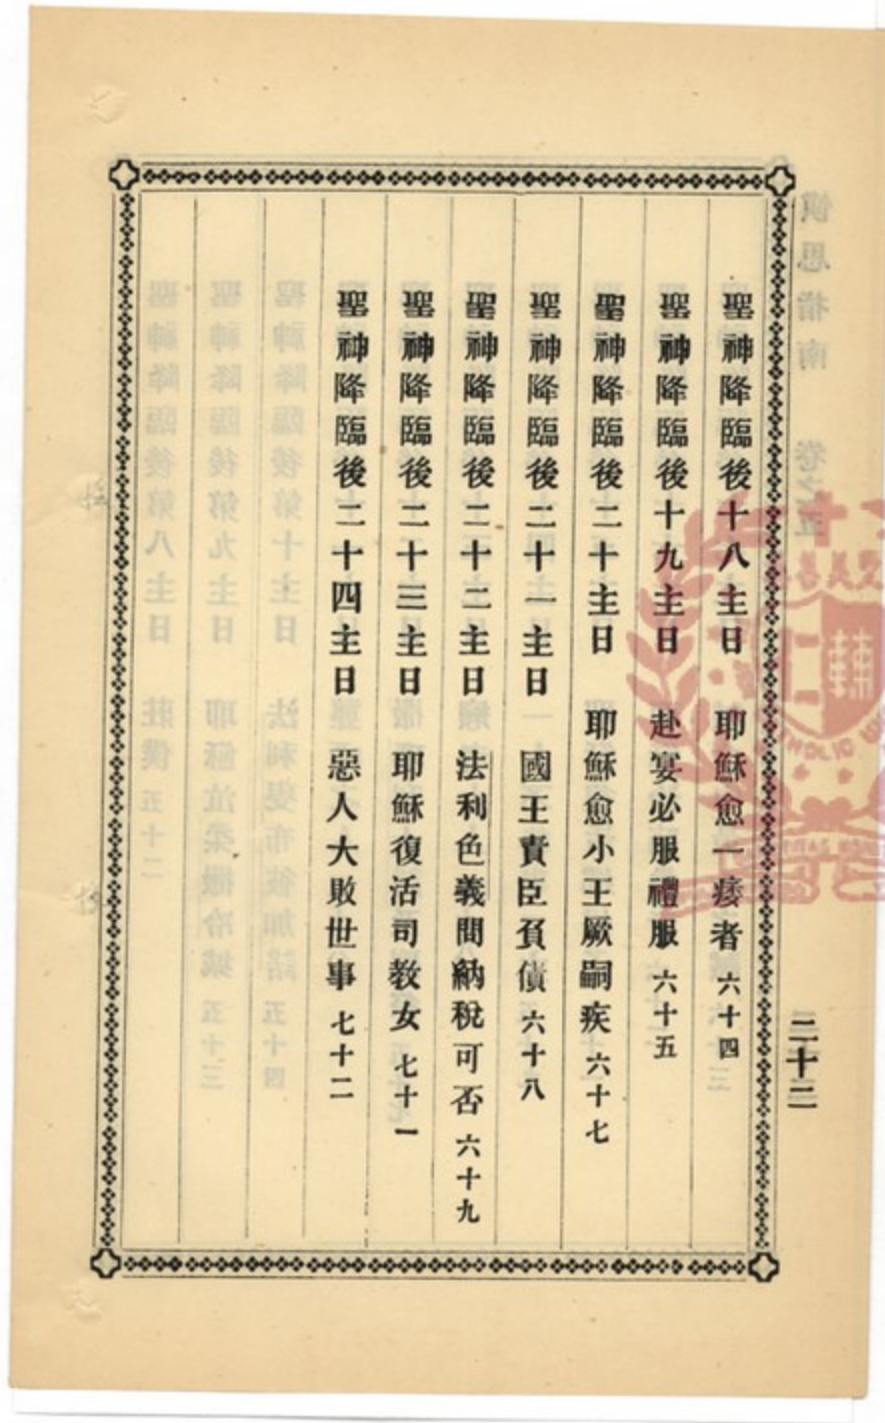 聖神降臨後十八主日 耶穌愈一痿者 六十四
聖神降臨後十九主日 赴宴必服禮服 六十五
聖神降臨後二十主日 耶穌愈小王厥嗣疾 六十七
聖神降臨後二十一主日 國王責臣負債 六十八
聖神降臨後二十二主日 法利色義問納稅可否 六十九
聖神降臨後二十三主日 耶穌復活司教女 七十一
聖神降臨後二十四主日 惡人大敗世事 七十二
二十二